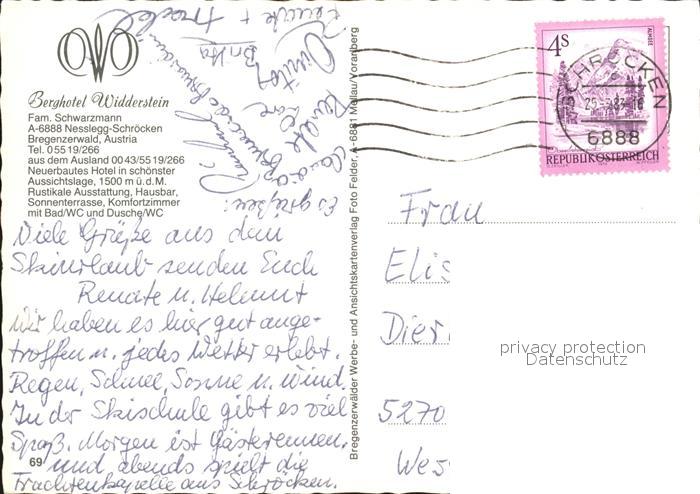 OWO
Berghotel Widderstein
Fam. Schwarzmann
A-6888 Nesslegg-Schröcken
Bregenzerwald, Austria
Tel. 0 55 19/266
aus dem Ausland 00 43/55 19/266
Neuerbautes Hotel in schönster
Aussichtslage, 1500 m ü. d. M.
Rustikale Ausstattung, Hausbar,
Sonnenterrasse, Komfortzimmer
mit Bad/WC und Dusche/WC
Es grüßen:
Renate +
Britta
Viele Grüße aus dem
Skiurlaub senden Euch
Renate u. Helmut
Wir haben es hier gut ange-
troffen u. jedes Wetter erlebt.
Regen, Schnee, Sonne u. Wind.
In der Skischule gibt es viel
Spaß. Morgen ist Gästerennen,
und abends spielt die
Trachtenkapelle aus Schröcken.
69
Bregenzerwälder Werbe- und Ansichtskartenverlag Foto Felder, A-6881 Mellau/Vorarlberg
4S
ALMSEE
REPUBLIK ÖSTERREICH
SCHRÖCKEN
6888
Frau
Elis
Dier
5270
Wes
privacy protection
Datenschutz